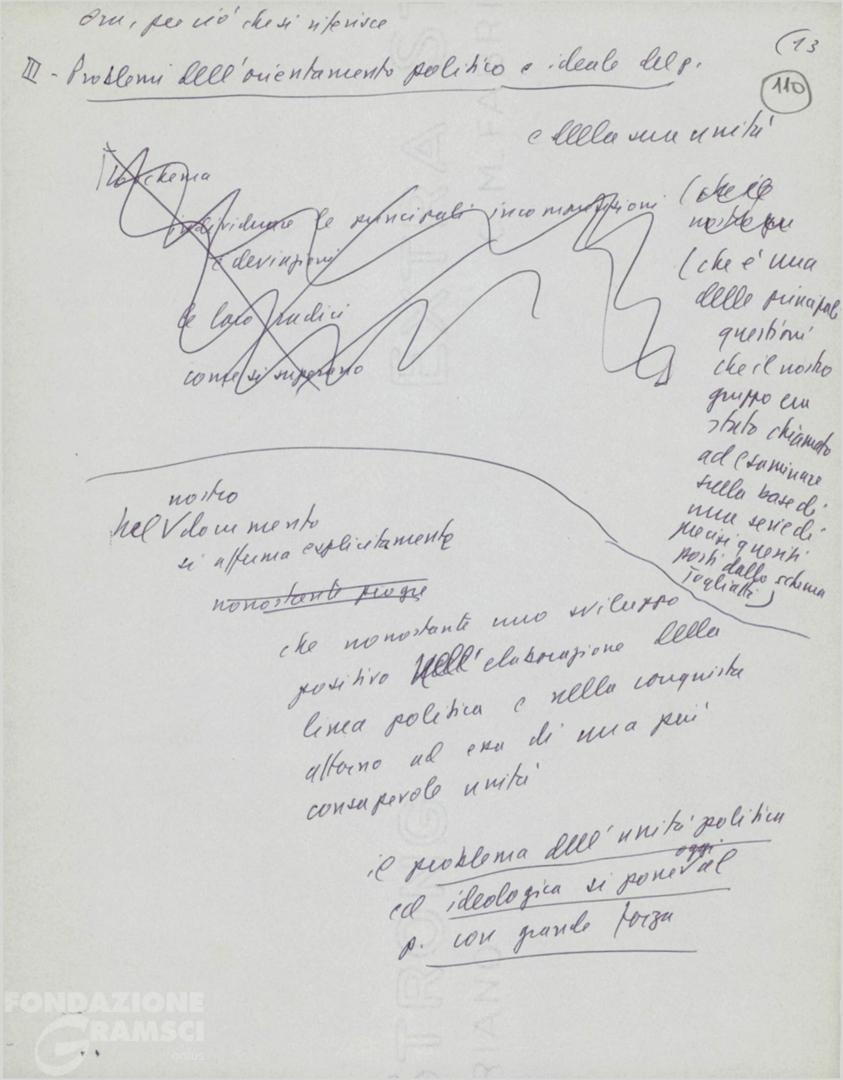 Ora, per ciò che si riferisce
(13
III - Problemi dell'orientamento politico e ideale del p.
110
e della sua unità
Lo schema
individuare le principali incomprensioni
e deviazioni
le loro radici
come si superano
(che il
nostro gru
(che è una
delle principali
questioni
che il nostro
gruppo era
stato chiamato
ad esaminare
sulla base di
una serie di
precisi quesiti
posti dallo schema
Togliatti)
nostro
nel V documento
si afferma esplicitamente
nonostante progre
che nonostante uno sviluppo
positivo nell'elaborazione della
linea politica e nella conquista
attorno ad essa di una più
consapevole unità
il problema dell'unità politica
oggi
ed ideologica si pone V al
p. con grande forza
FONDAZIONE
GRAMSCI
onlus